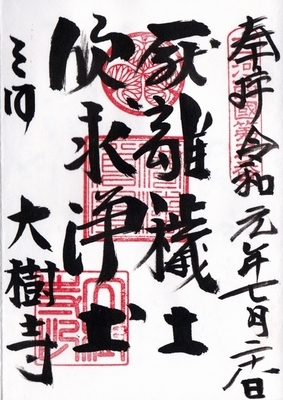 奉拝 令和元年七月二十八日
厭離穢土
欣求浄土
三河 大樹寺